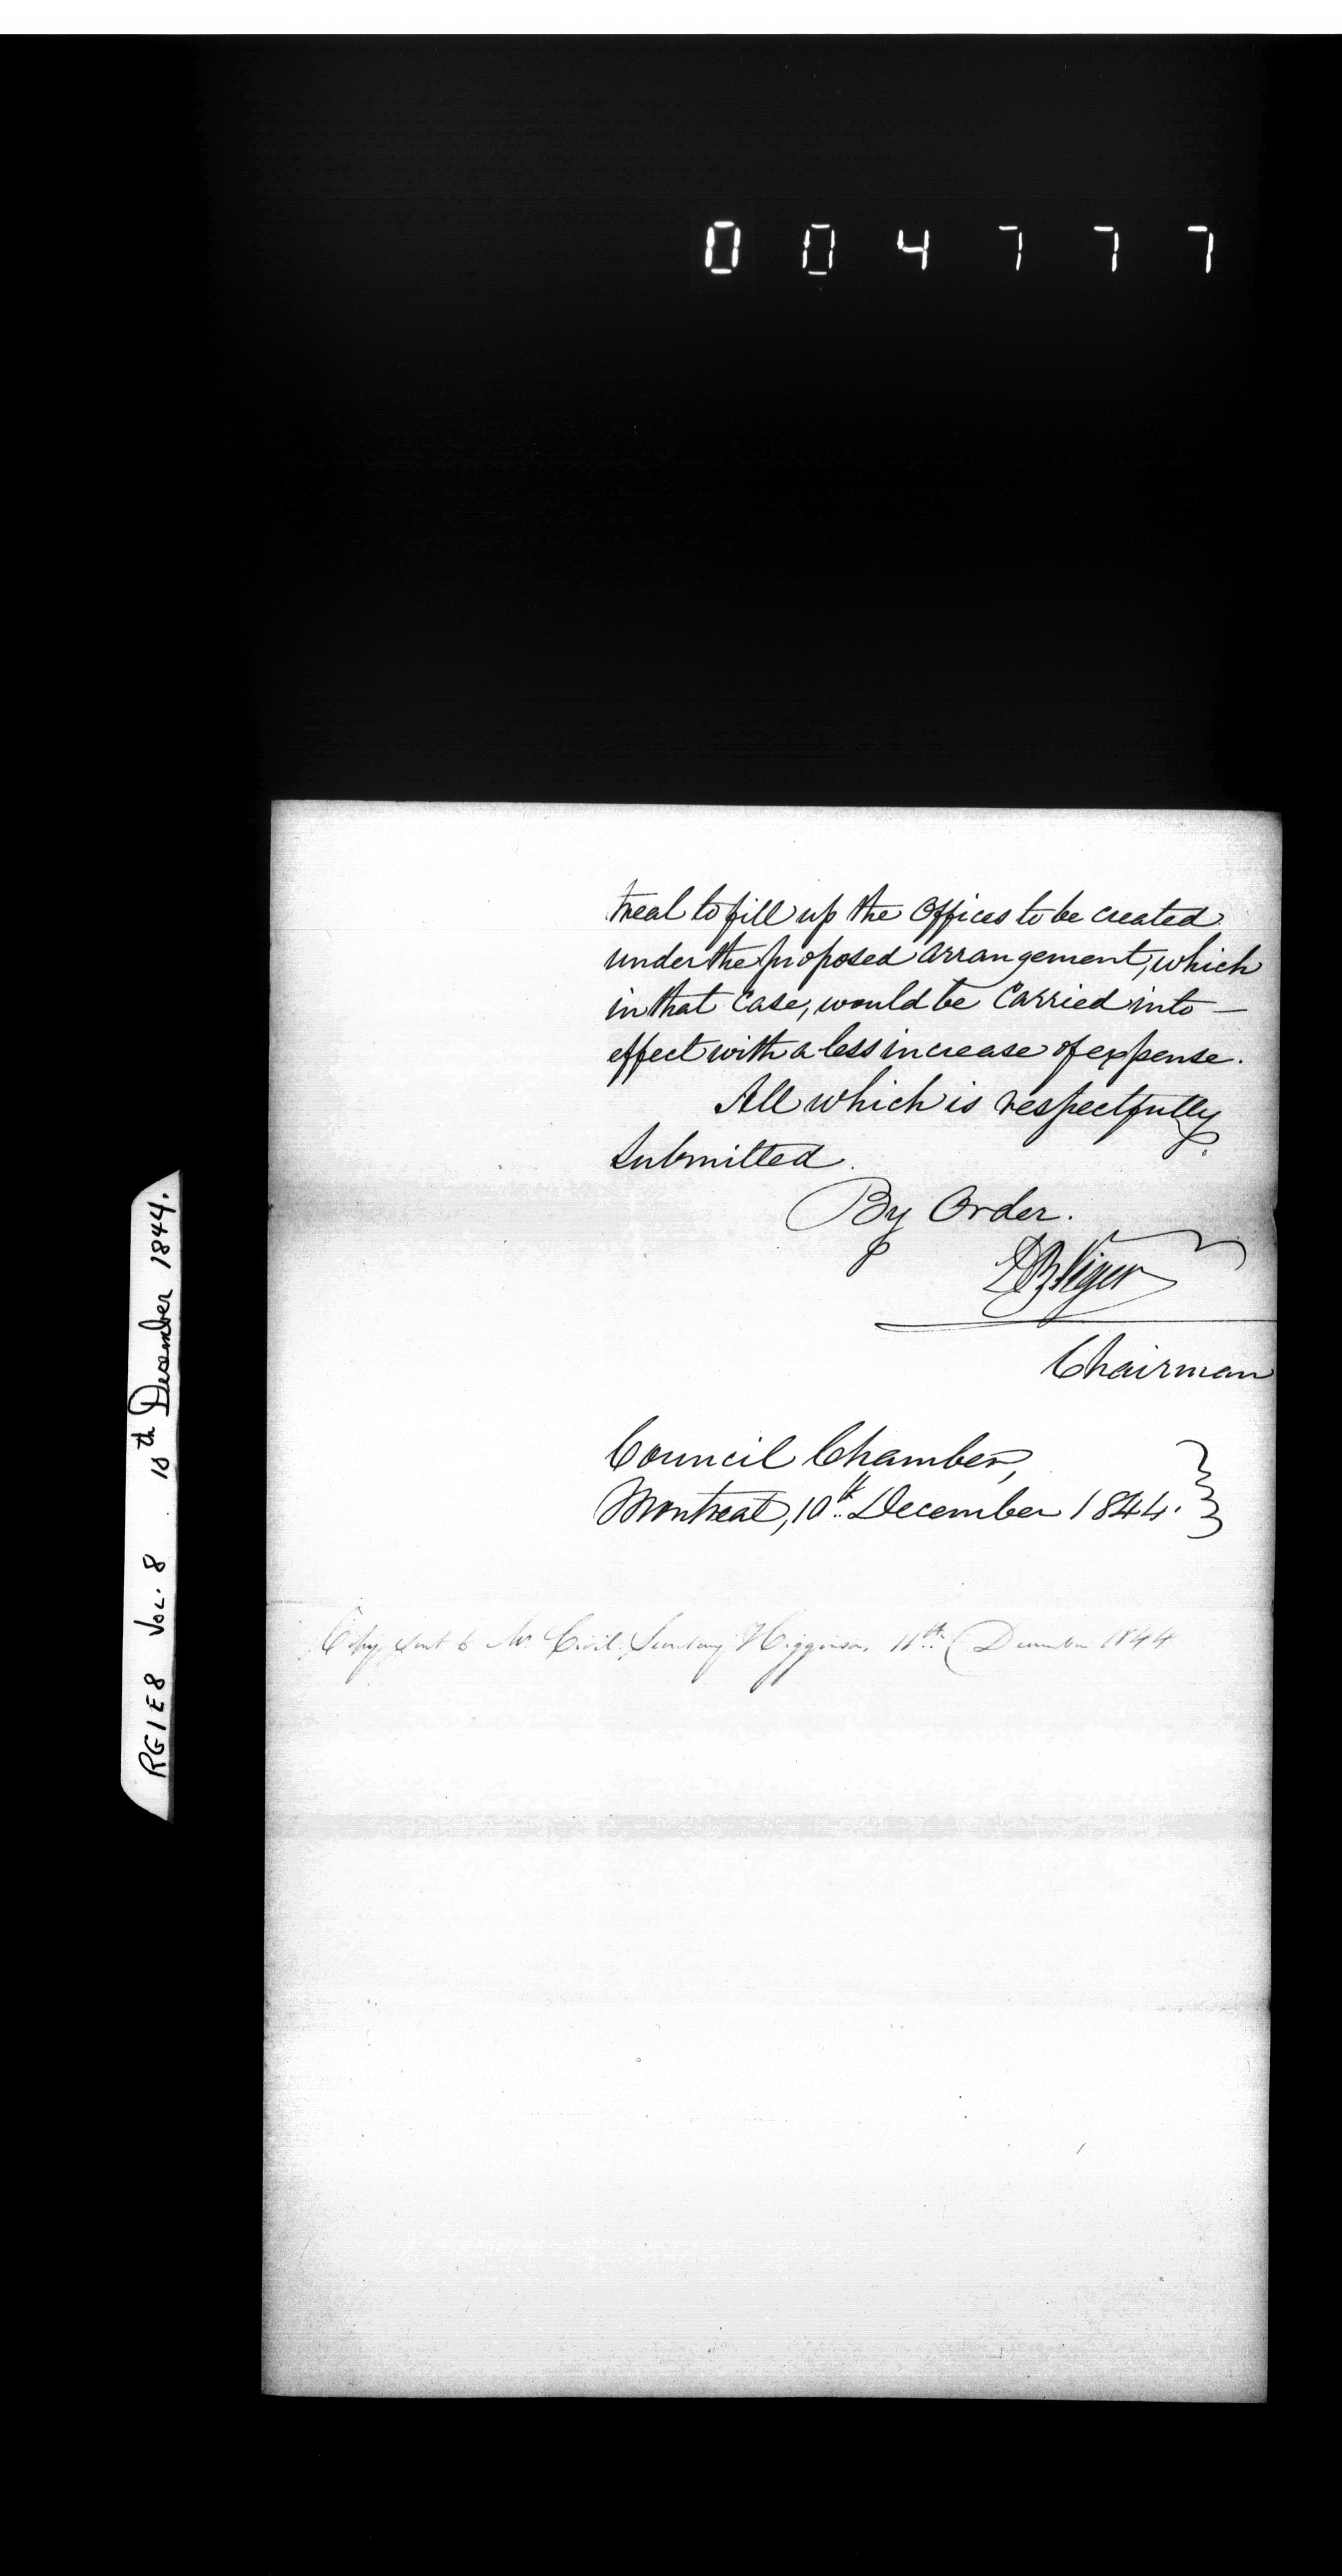 004777
treal to fill up the Offices to be created
under the proposed arrangement, which
in that case, would be carried into —
effect with a less increase of expense.
All which is respectfully
Submitted.
By Order.
D B Viger
Chairman
Council Chamber,
Montreal, 10th December 1844.
Copy sent to Mr Civil Secretary Higginson, 11th December 1844
RG1E8 VOL. 8 10th December 1844.